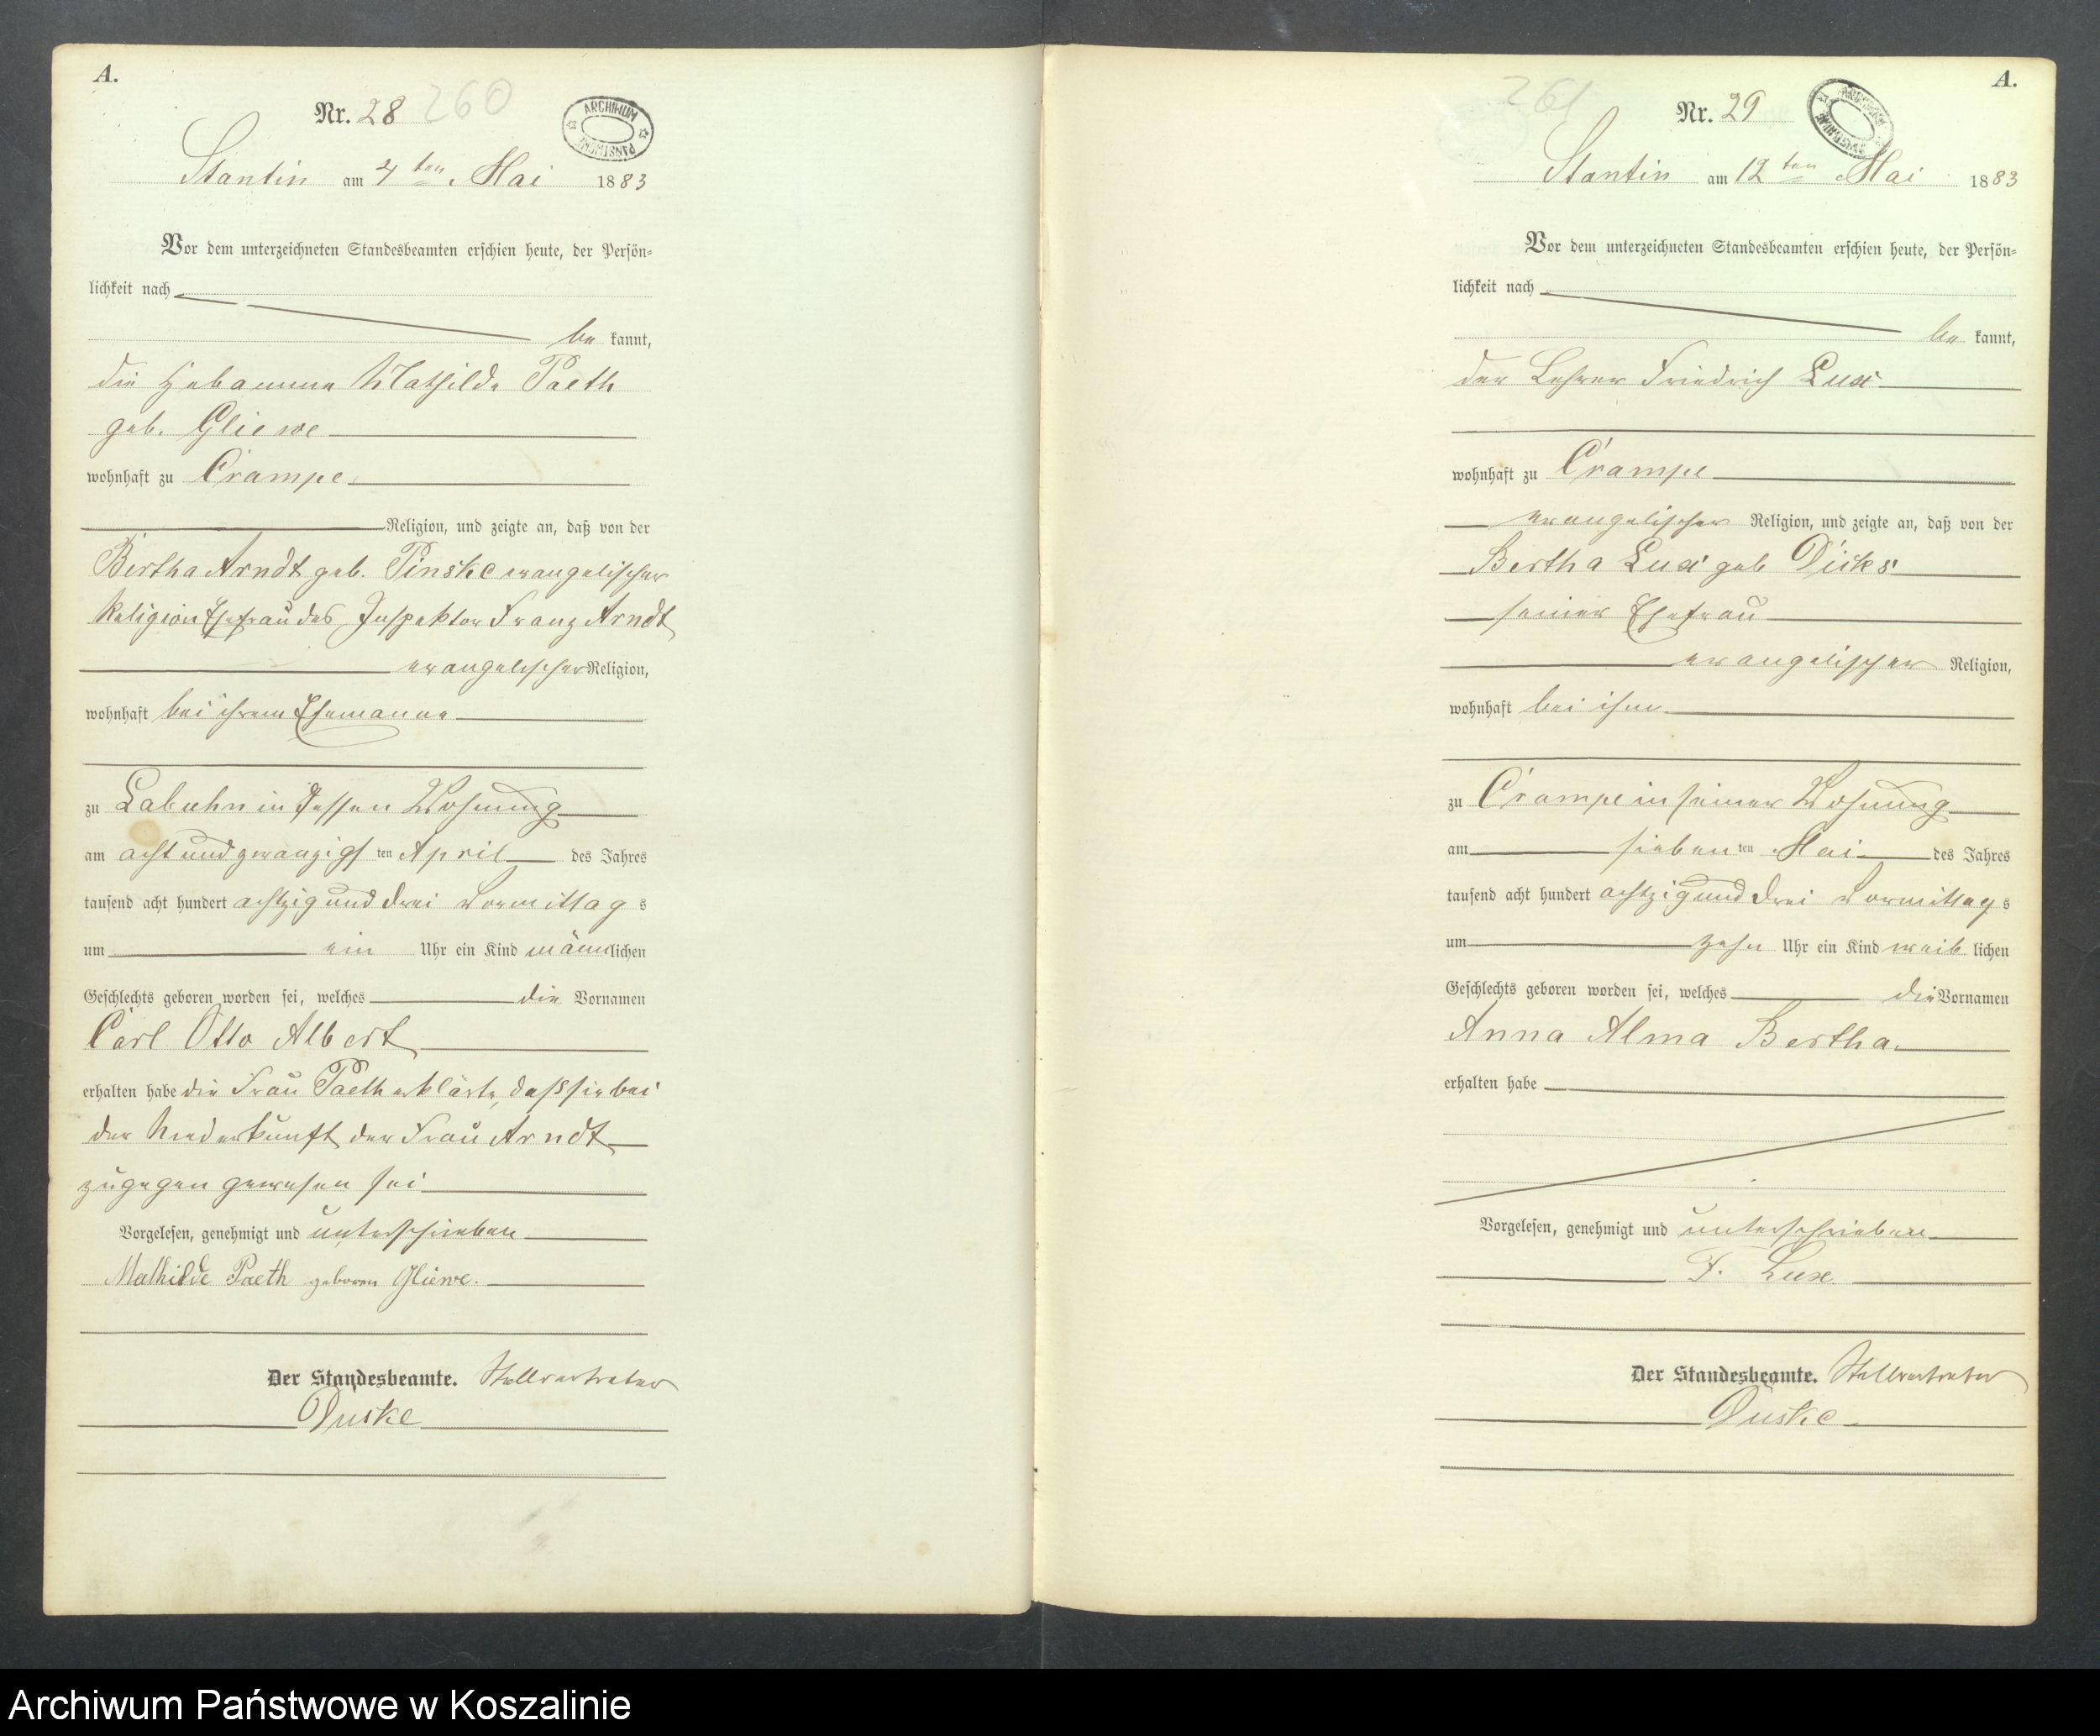 A.
Nr. 28 260
ARCHIWUM PAŃSTWOWE
Stantin am 4ten Mai 1883
Vor dem unterzeichneten Standesbeamten erschien heute, der Persön-
lichkeit nach
be kannt,
die Hebamme Mathilde Paeth
geb. Gliewe
wohnhaft zu Crampe
Religion, und zeigte an, daß von der
Bertha Arndt geb. Pinske evangelischer
Religion Ehefrau des Inspektor Franz Arndt
evangelischer Religion,
wohnhaft bei ihrem Ehemanne
zu Labuhn in dessen Wohnung
am acht und zwanzigs ten April des Jahres
tausend acht hundert achtzig und drei Vormittag s
um ein Uhr ein Kind männlichen
Geschlechts geboren worden sei, welches die Vornamen
Carl Otto Albert
erhalten habe die Frau Paeth erklärte, daß sie bei
der Niederkunft der Frau Arndt
zugegen gewesen sei
Vorgelesen, genehmigt und unterschrieben
Mathilde Paeth geboren Gliewe.
Der Standesbeamte. Stellvertreter
Düske
A.
261 Nr. 29
Stantin am 12ten Mai 1883
Vor dem unterzeichneten Standesbeamten erschien heute, der Persön-
lichkeit nach
be kannt,
der Lehrer Friedrich Lux
wohnhaft zu Crampe
evangelischer Religion, und zeigte an, daß von der
Bertha Lux geb Dicks
seiner Ehefrau
evangelischer Religion,
wohnhaft bei ihm
zu Crampe in seiner Wohnung
am sieben ten Mai des Jahres
tausend acht hundert achtzig und drei Vormittag s
um zehn Uhr ein Kind weib lichen
Geschlechts geboren worden sei, welches die Vornamen
Anna Alma Bertha
erhalten habe
Vorgelesen, genehmigt und unterschrieben
F. Lux
Der Standesbeamte. Stellvertreter
Düske
Archiwum Państwowe w Koszalinie